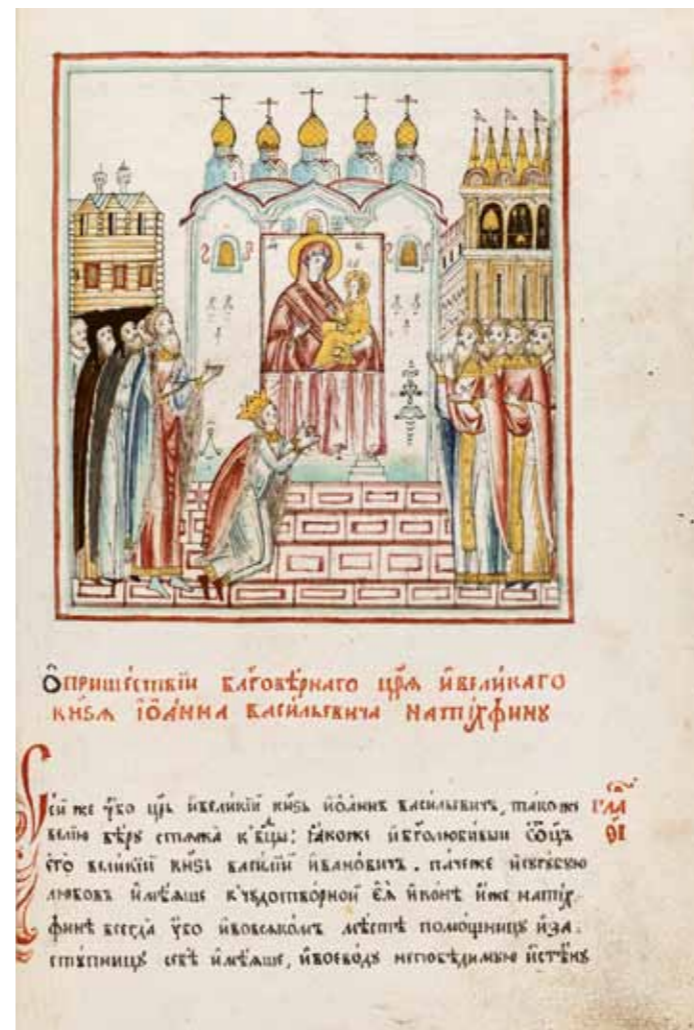 Ѽ пришествїи бл҃говѣрнаго цр҃ѧ и҆великаго
кн҃ѕѧ їѡа́нна васи́льевича натїхѳинꙋ
Сей же ᲂу҆́бо цр҃ь и҆великїй кн҃ѕь и҆ѡа́ннъ васи́льевичъ, такоже
велїю вѣ́рꙋ стѧжа̀ к̾бц҃ы: ꙗ҆́коже и҆бг҃олюбивый ѻ҆ц҃ъ
є҆гѡ̀ великїй кн҃ѕь василїй и҆ва́новичъ. паче́же и҆сꙋгꙋбꙋю
любовь и҆мѣ́ѧше к̾чꙋдотво́рной є҆ѧ̀ и҆ко́нѣ и҆́же натїх
ѳинѣ всегда̀ ᲂу҆́бо и҆вовсѧ́комъ мѣ́стѣ помо́щницꙋ и҆за
стꙋ́пницꙋ себѣ̀ и҆мѣ́ѧше, и҆воево́дꙋ непобѣди́мꙋю и҆стѣ́нꙋ
гла҃
ѳ҃і